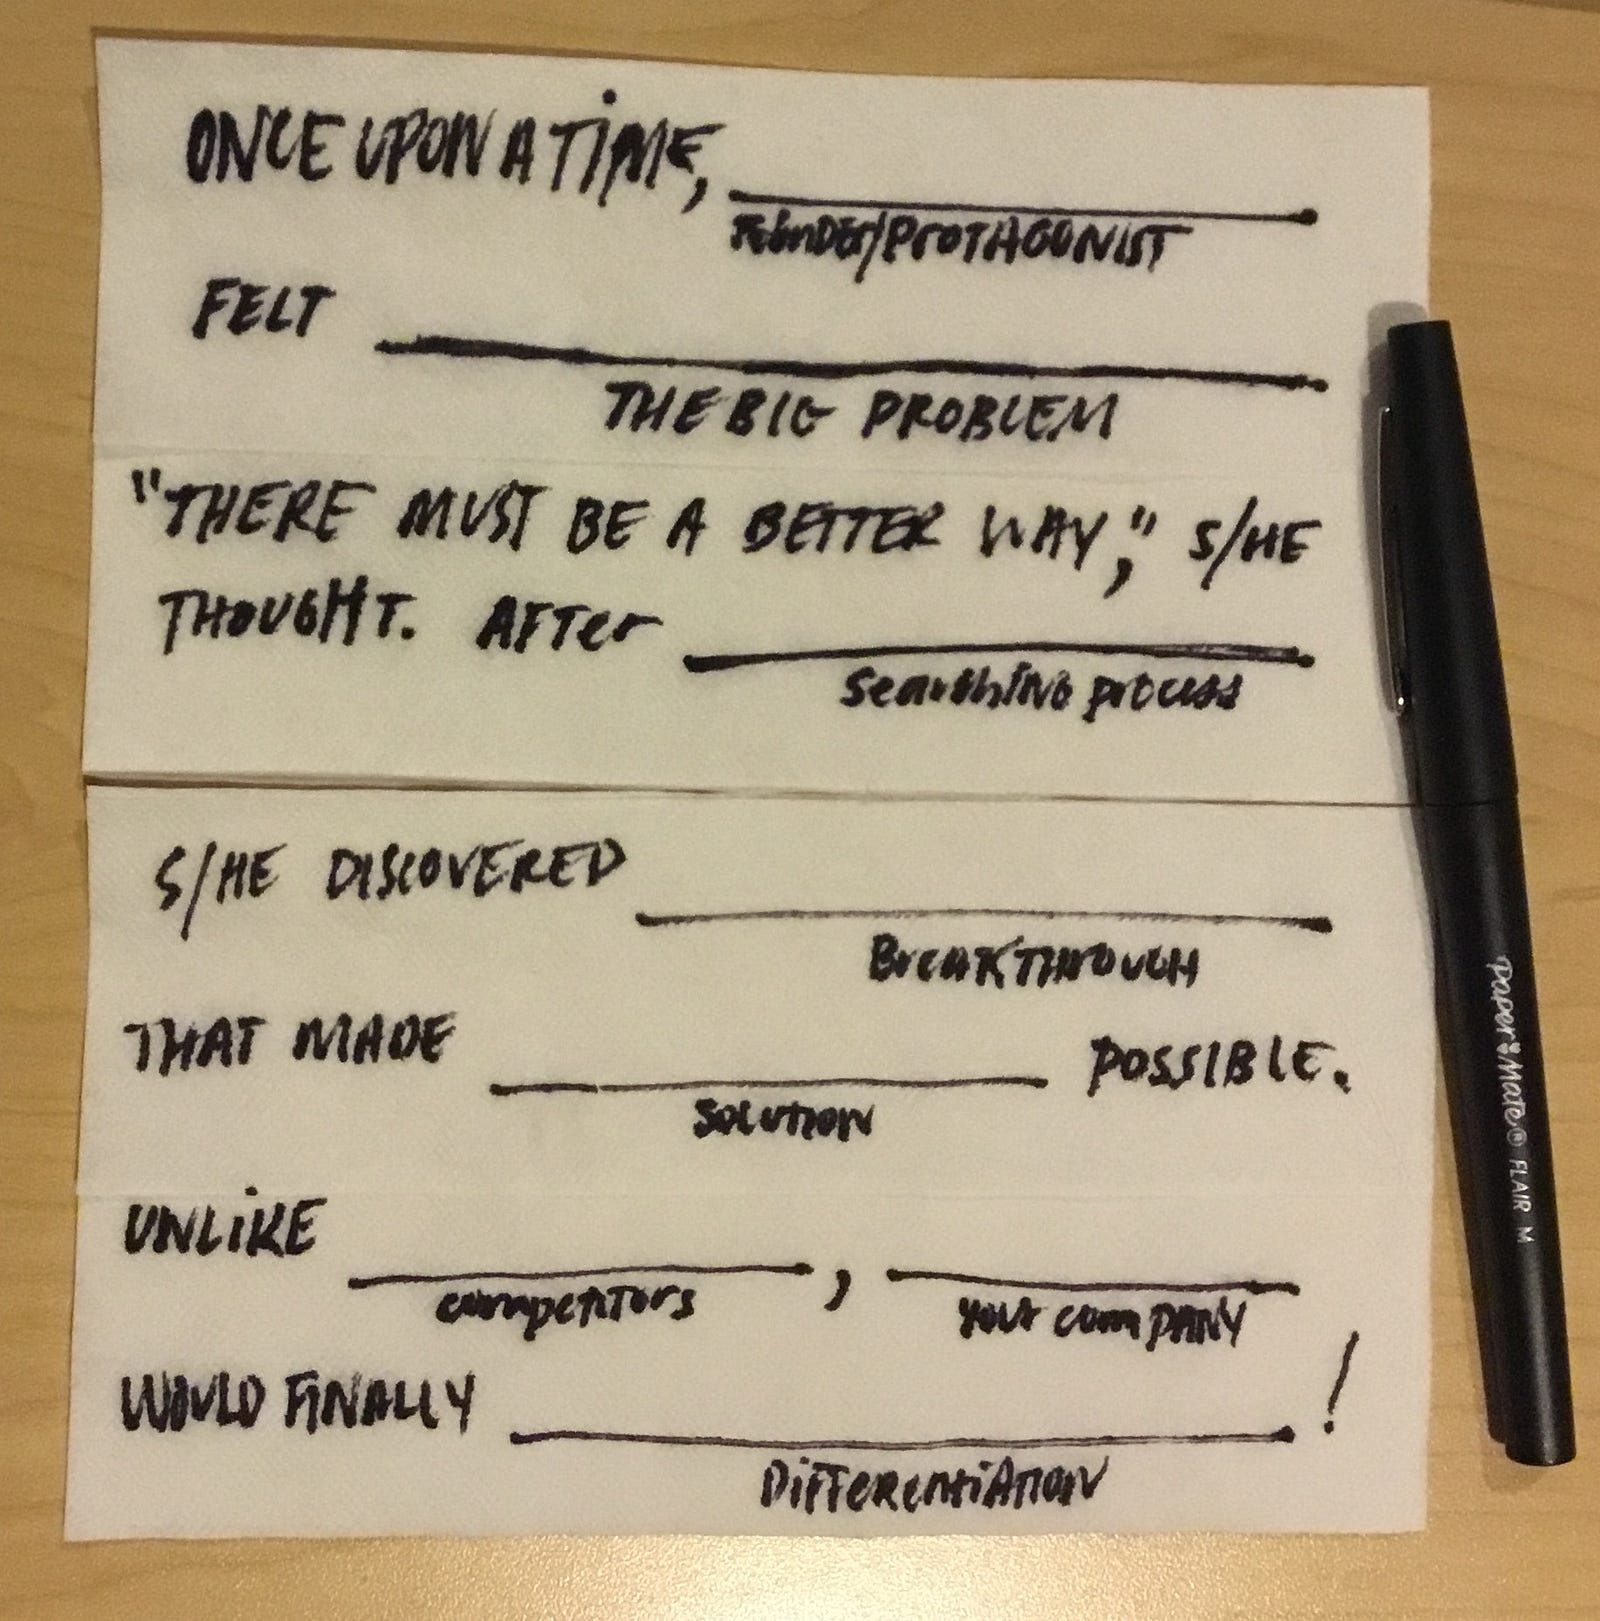 ONCE UPON A TIME,
FOUNDER/PROTAGONIST
FELT
THE BIG PROBLEM
"THERE MUST BE A BETTER WAY," S/HE
THOUGHT. AFTER
Searching process
S/HE DISCOVERED
BREAKTHROUGH
THAT MADE POSSIBLE.
SOLUTION
UNLIKE ,
competitors your company
WOULD FINALLY !
DIFFERENTIATION
Paper Mate® FLAIR M